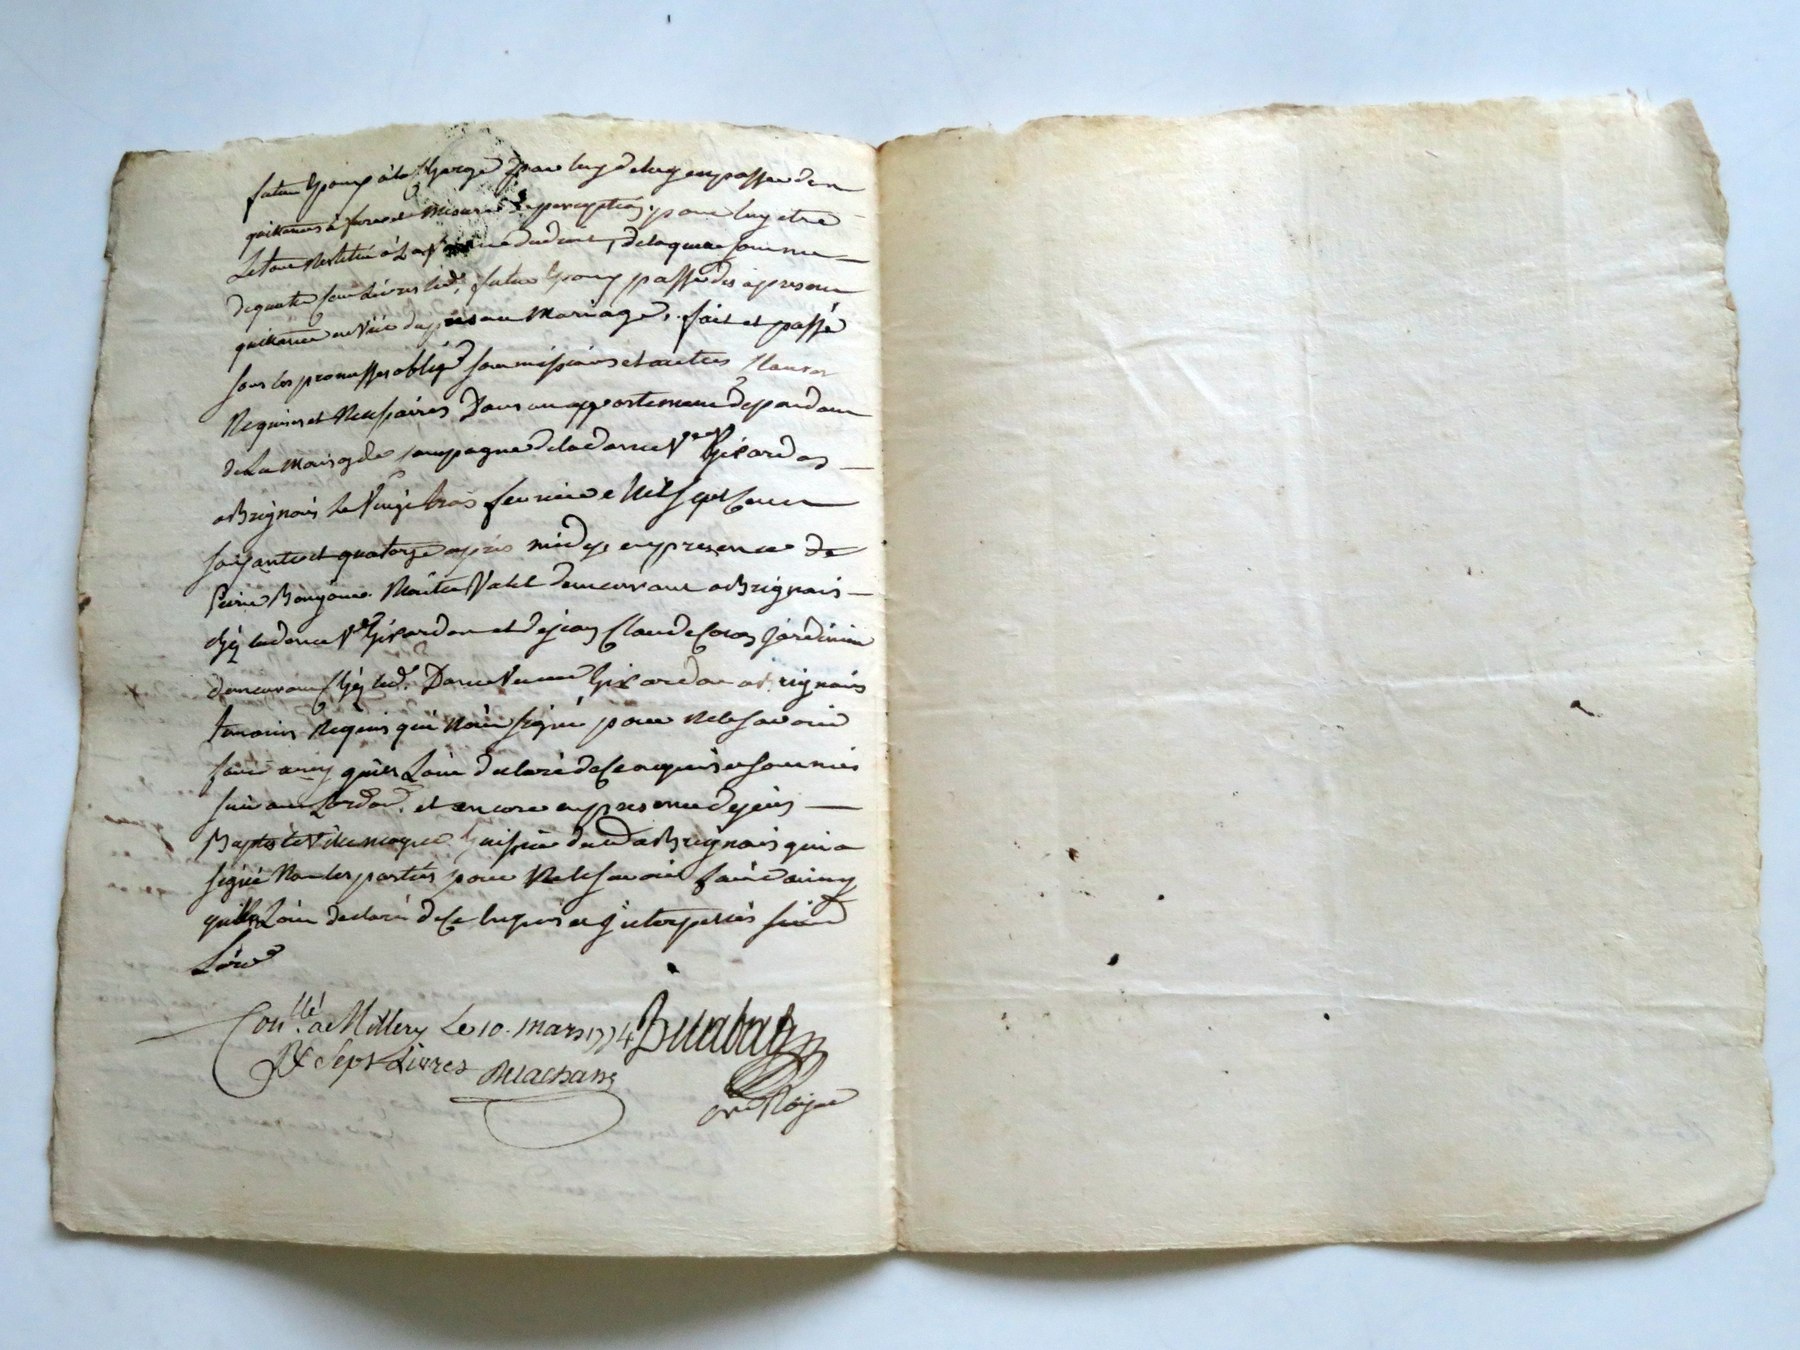 futur Epoux à la Charge par luy d'en passer
quittances à forme et mesure de perception, pour luy etre
Le tout restitué de laquelle somme
de quatre Livres led. futur Epoux passe dès à present
quittance en vüe du present Mariage. fait et passé
sous les promesses oblig. soumissions et autres Clauses
Requises et Necessaires Dans un appartement dependant
de La Maison de Campagne de la dame Ve Girardon
a Brignais Le Vingt trois fevrier Mil Sept Cent
soixante et quatorze après midy, en presence de
Pierre Maitre Valet demeurant a Brignais
chez la dame Ve Girardon et de jean Claude Jardinier
demeurant Chez lad. Dame Veuve Girardon a Brignais
temoins Requis qui n'ont signé pour ne le savoir
faire ainsy qu'ils L'ont declaré de ce enquis et sommés
suivant Lordon. et encore en presence de jean
Baptiste huissier a Brignais qui a
signé Non les parties pour Ne le savoir faire ainsy
qu'ils L'ont declaré de ce enquis et interpellés
Conllé a Millery Le 10. mars 1774
Rx Sept Livres